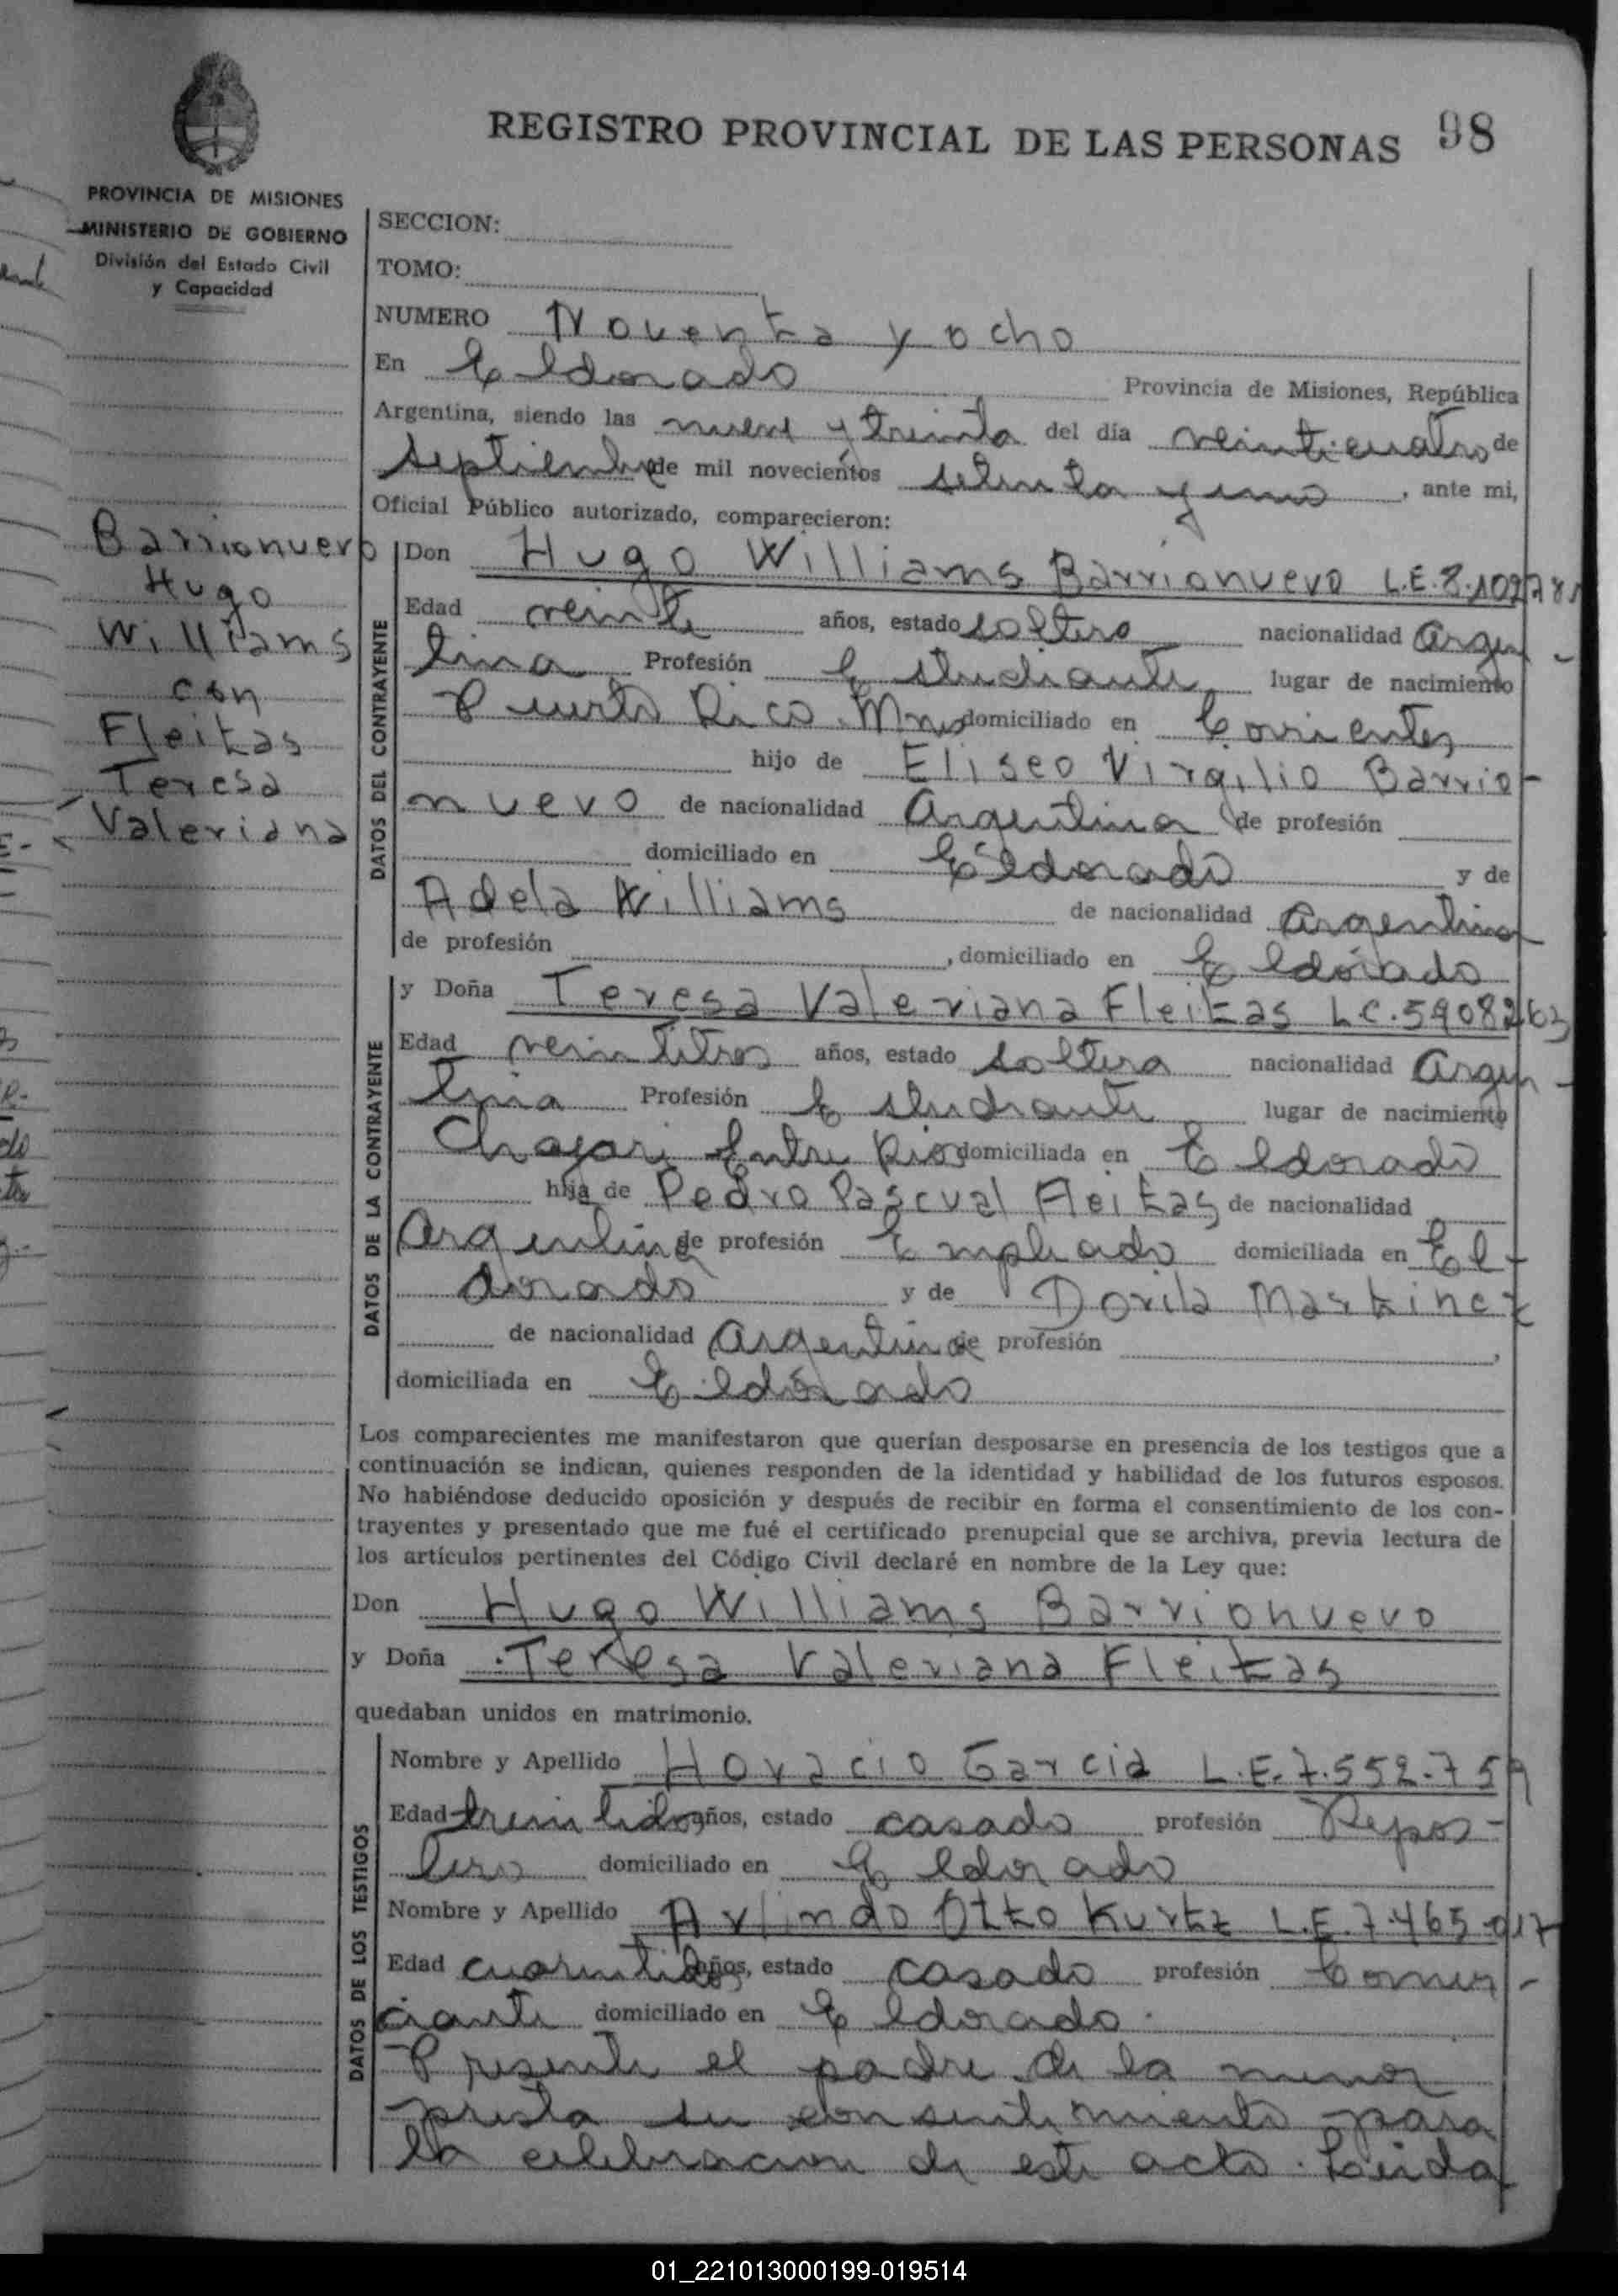 REGISTRO PROVINCIAL DE LAS PERSONAS 98
PROVINCIA DE MISIONES
MINISTERIO DE GOBIERNO
División del Estado Civil
y Capacidad
Barrionuevo
Hugo
Williams
con
Fleitas
Teresa
Valeriana
SECCION:
TOMO:
NUMERO Noventa y ocho
En Eldorado Provincia de Misiones, República
Argentina, siendo las nueve y treinta del día veinticuatro de
septiembre de mil novecientos setenta y uno, ante mi,
Oficial Público autorizado, comparecieron:
DATOS DEL CONTRAYENTE
Don Hugo Williams Barrionuevo L.E.
Edad veinte años, estado soltero nacionalidad Argen-
tina Profesión Estudiante lugar de nacimiento
Puerto Rico Mnes domiciliado en Corrientes
hijo de Eliseo Virgilio Barrio-
nuevo de nacionalidad Argentina de profesión
domiciliado en Eldorado y de
Adela Williams de nacionalidad Argentina
de profesión , domiciliado en Eldorado
DATOS DE LA CONTRAYENTE
y Doña Teresa Valeriana Fleitas LC. 5908263
Edad veintitres años, estado soltera nacionalidad Argen-
tina Profesión Estudiante lugar de nacimiento
Chajari Entre Rios domiciliada en Eldorado
hija de Pedro Pascual Fleitas de nacionalidad
Argentina de profesión Empleado domiciliada en El-
dorado y de Dorila Martinez
de nacionalidad Argentina de profesión ,
domiciliada en Eldorado
Los comparecientes me manifestaron que querían desposarse en presencia de los testigos que a
continuación se indican, quienes responden de la identidad y habilidad de los futuros esposos.
No habiéndose deducido oposición y después de recibir en forma el consentimiento de los con-
trayentes y presentado que me fué el certificado prenupcial que se archiva, previa lectura de
los artículos pertinentes del Código Civil declaré en nombre de la Ley que:
Don Hugo Williams Barrionuevo
y Doña Teresa Valeriana Fleitas
quedaban unidos en matrimonio.
DATOS DE LOS TESTIGOS
Nombre y Apellido Horacio Garcia L.E. 7.552.759
Edad treintidos años, estado casado profesión Repos-
tero domiciliado en Eldorado
Nombre y Apellido Arlindo Otto Kurtz L.E. 7.465.017
Edad cuarentidos años, estado casado profesión Comer-
ciante domiciliado en Eldorado.
Presente el padre de la menor
presta su consentimiento para
la celebracion de este acto. Leida
01_221013000199-019514